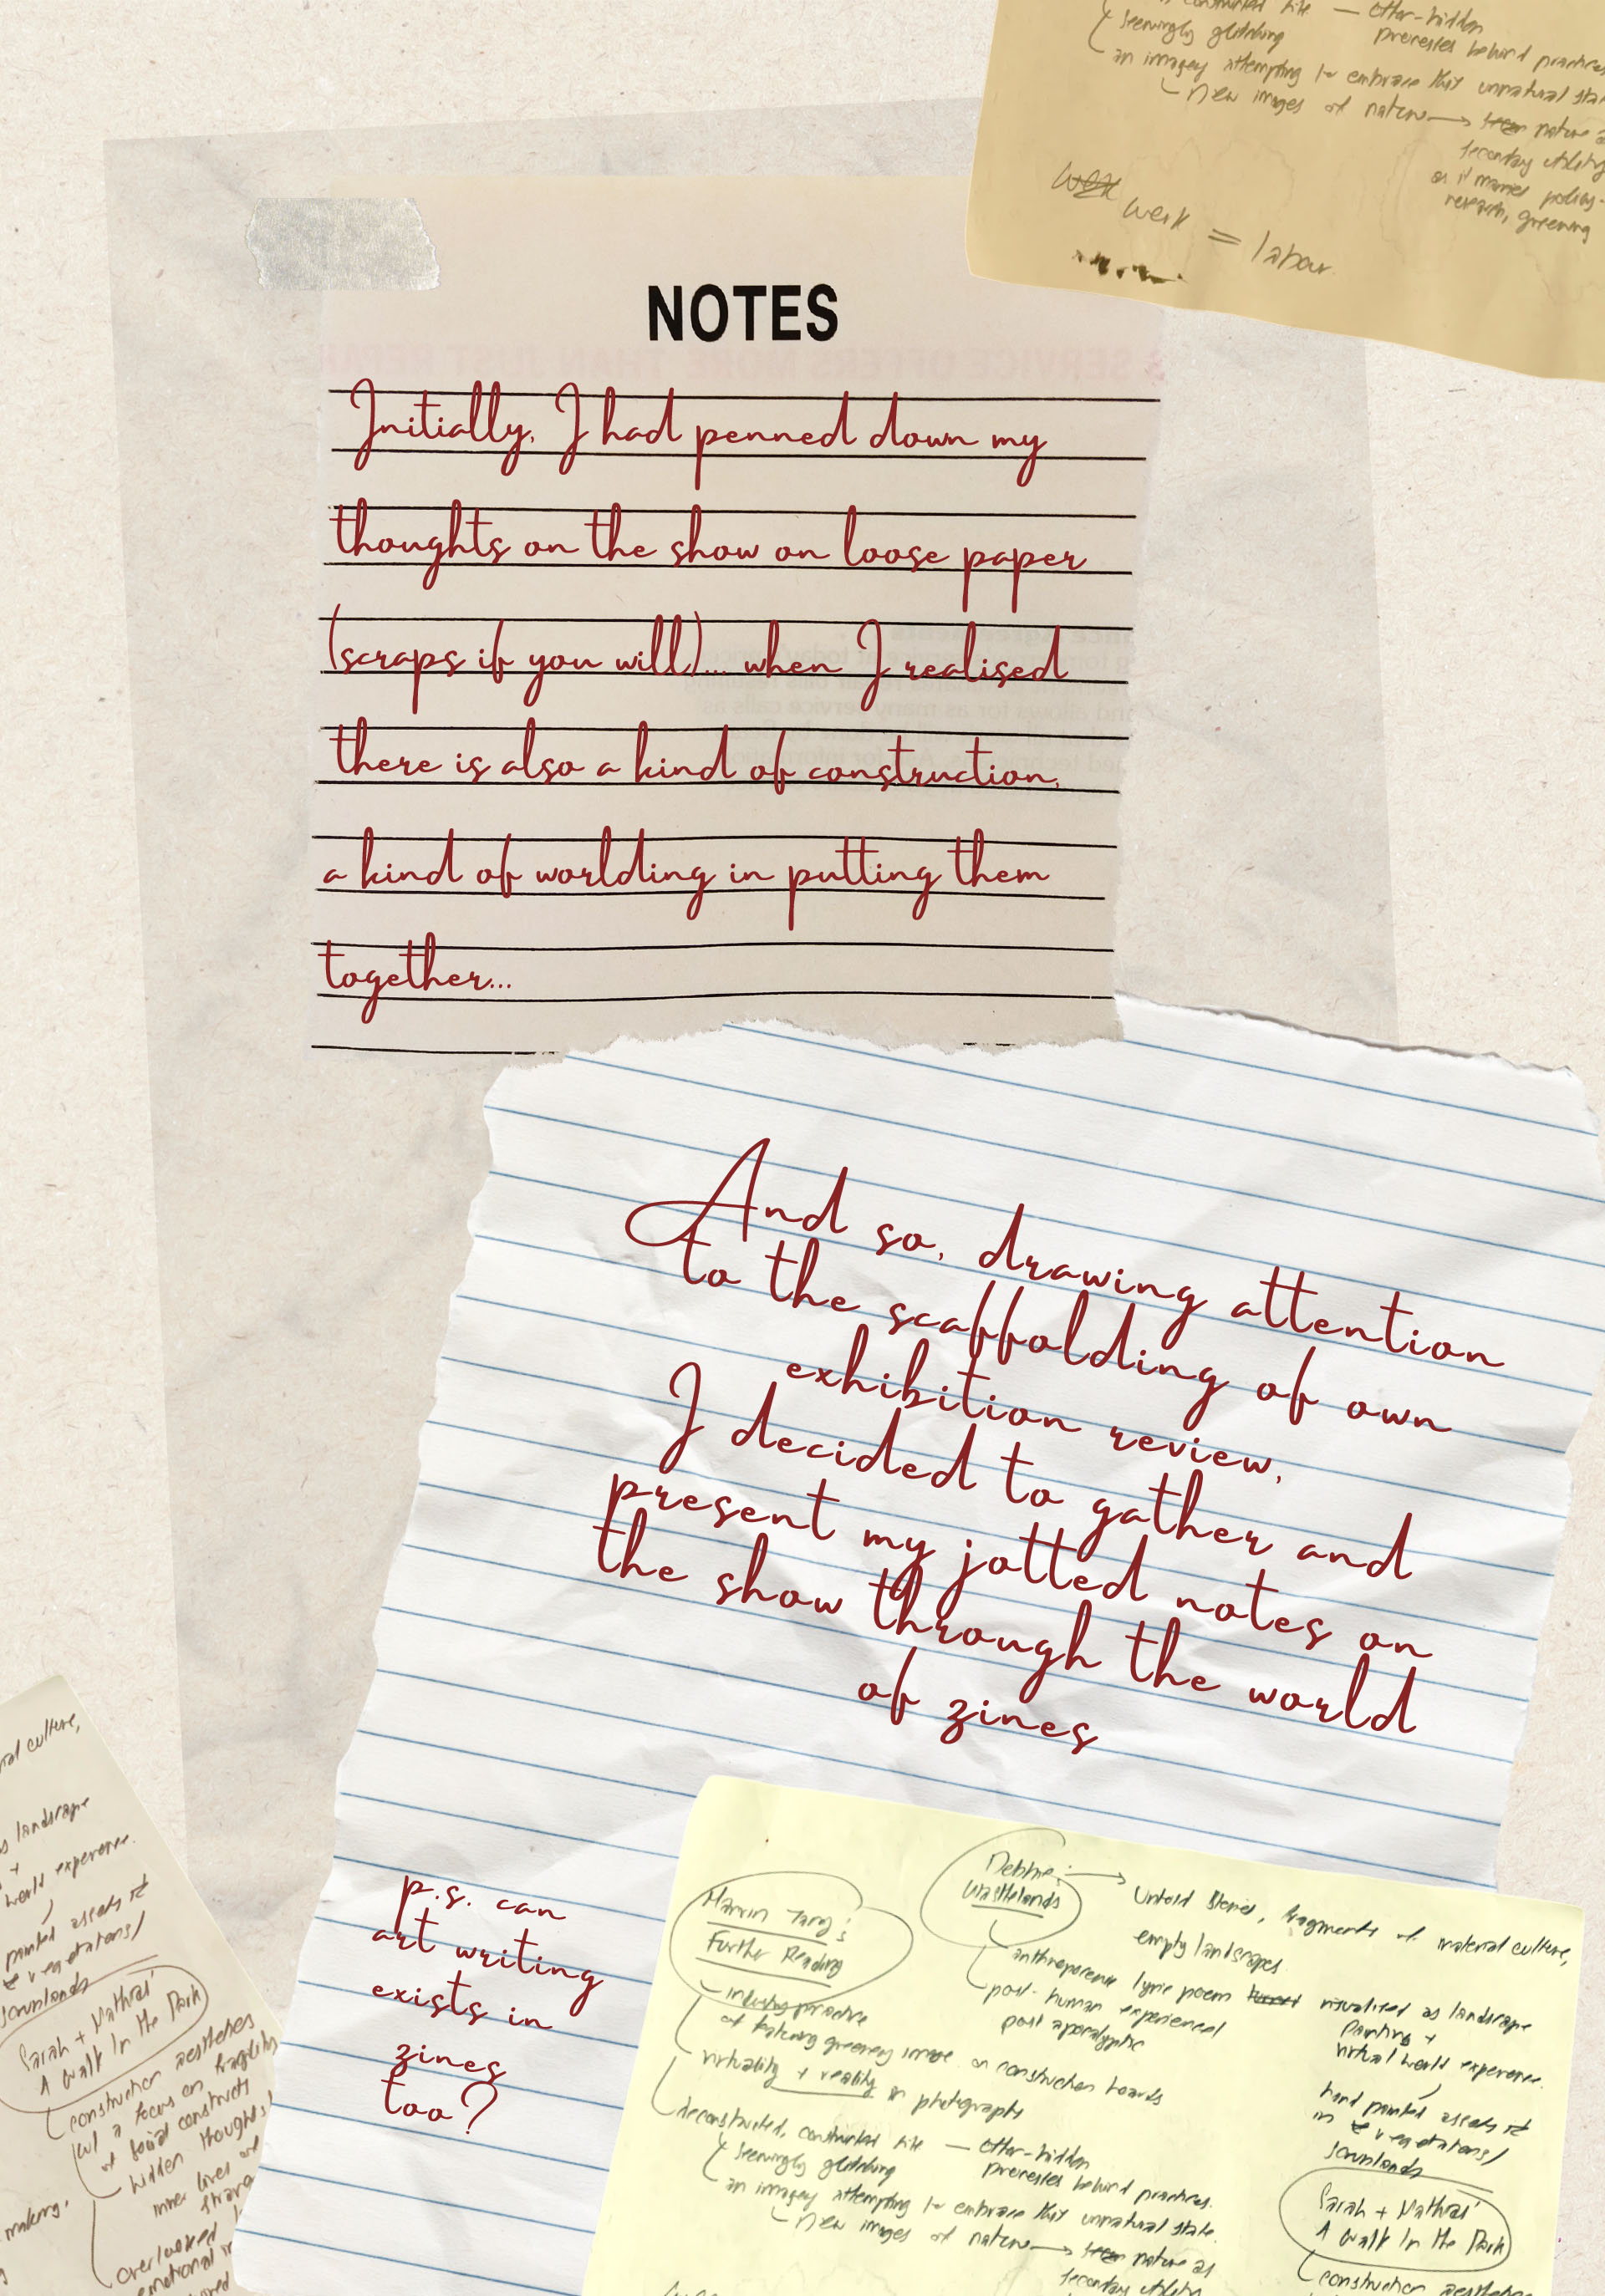 constructed site — often-hidden
seemingly glitching processes behind practices
an imagery attempting to embrace this unnatural sta
New images of nature → nature a
secondary utility
as it marries policy-
research, greening
work = labour
NOTES
Initially, I had penned down my
thoughts on the show on loose paper
(scraps if you will)... when I realised
there is also a kind of construction,
a kind of worlding in putting them
together...
And so, drawing attention
to the scaffolding of own
exhibition review,
I decided to gather and
present my jotted notes on
the show through the world
of zines
p.s. can
art writing
exists in
zines
too?
ial culture,
s landscape
+
world experience.
painted assets
vegetations/
scrublands
Sarah + Nathral'
A Walk In the Park
construction aesthetics
w/ a focus on fragility
of social constructs
hidden thoughts,
inner lives of
overlooked
emotional
making,
Marvin Tang:
Further Reading
industry practice
of taking greenery image on construction boards
virtuality + reality in photographs
deconstructed, constructed site — often-hidden
seemingly glitching processes behind practices.
an imagery attempting to embrace this unnatural state
New images of nature → nature as
secondary utility
Debbie: →
Wastelands
Untold stories, fragments of material culture,
empty landscapes
anthropocene lyric poem visualised as landscape
painting +
virtual world experience.
post-human experience/
post apocalyptic
hand painted assets
in vegetations/
scrublands
Sarah + Nathral'
A Walk In the Park
construction aesthetics